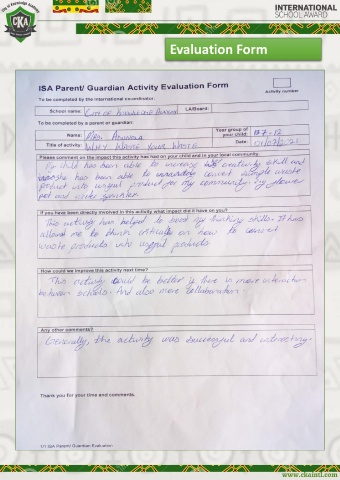 City of Knowledge Academy
CKA
INTERNATIONAL
SCHOOL AWARD
Evaluation Form
ISA Parent/ Guardian Activity Evaluation Form
Activity number
To be completed by the international coordinator.
School name: CITY OF KNOWLEDGE ACADEMY LA/Board:
To be completed by a parent or guardian:
Name: MRS.
Year group of your child: B7-12
Title of activity: WHY WASTE YOUR WASTE Date:
Please comment on the impact this activity has had on your child and in your local community.
My child has been able to increase creativity skill and
she has been able to convert simple waste
product into useful product for my community. e.g flower
pot and water sprinkler
If you have been directly involved in this activity what impact did it have on you?
This activity has helped to boost my thinking skills. It has
allowed me to think critically on how to convert
waste products into useful products
How could we improve this activity next time?
This activity could be better is there is more interaction
between schools. And also more collaboration.
Any other comments?
Generally, the activity was successful and interesting.
Thank you for your time and comments.
1/1 ISA Parent/ Guardian Evaluation
www.ckaintl.com